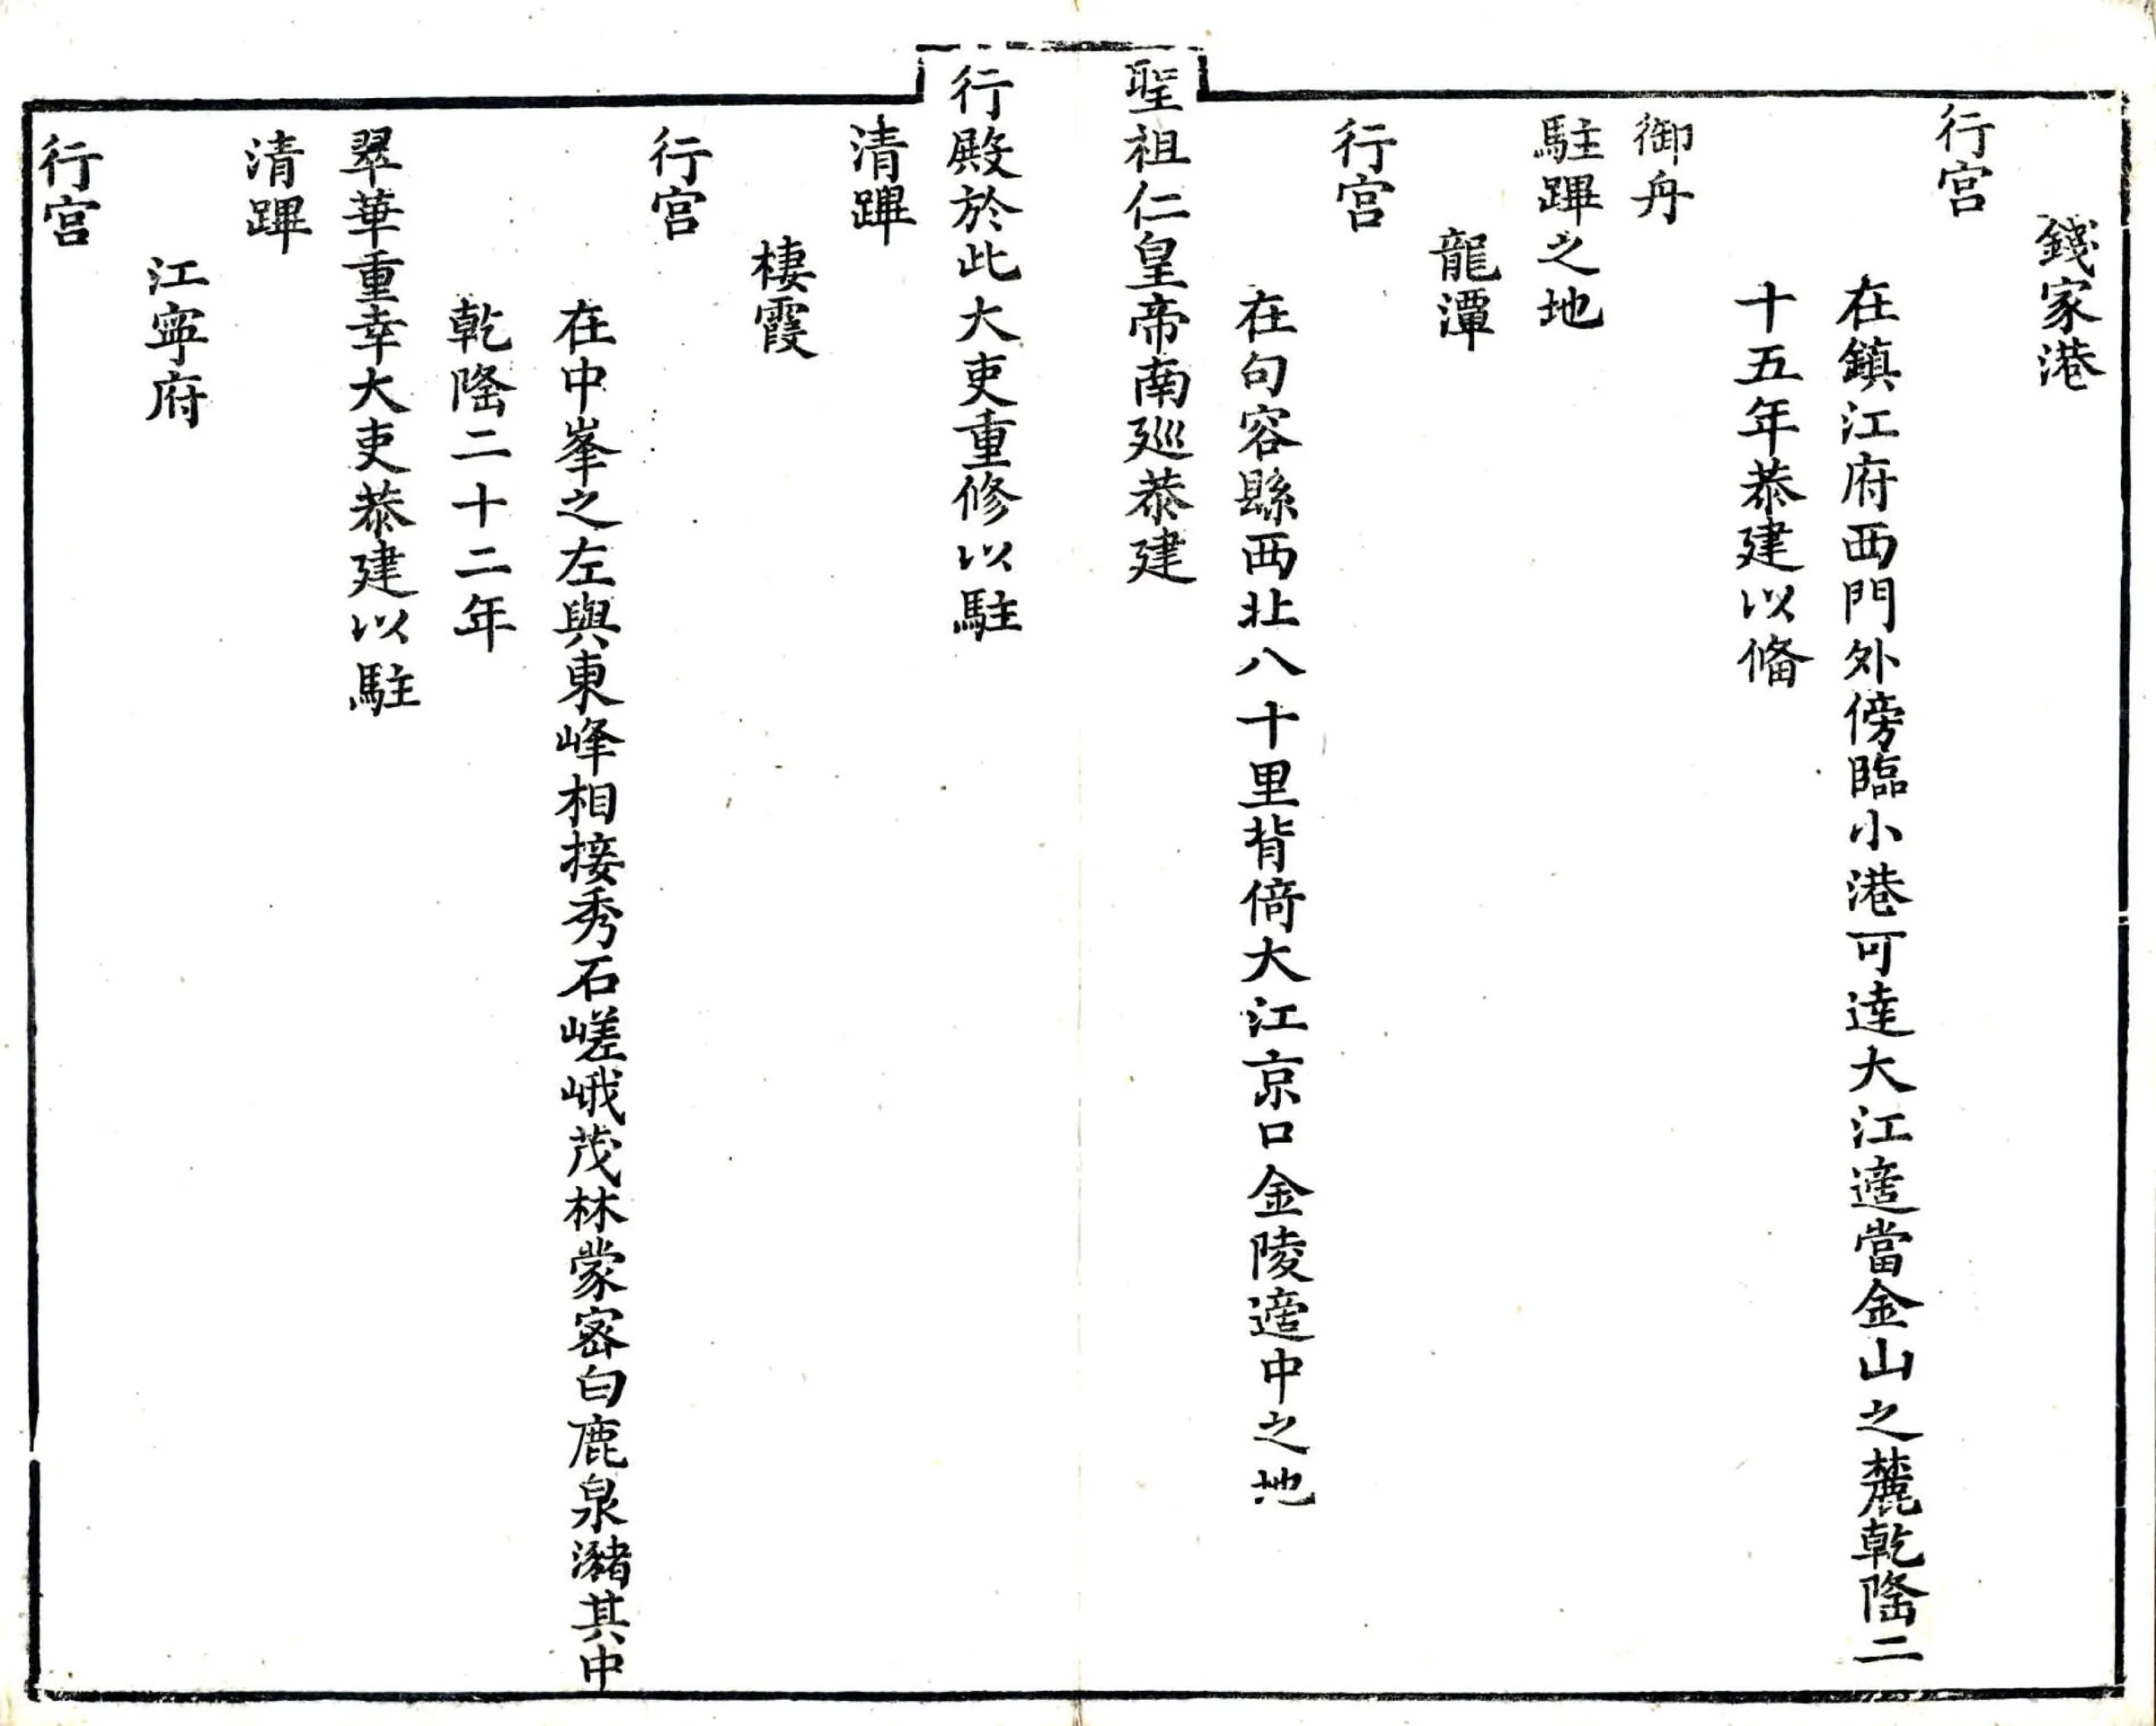 錢家港
行宮
在鎮江府西門外傍臨小港可達大江適當金山之麓乾隆二
十五年恭建以俻
御舟
駐蹕之地
龍潭
行宮
在句容縣西北八十里背倚大江京口金陵適中之地
聖祖仁皇帝南廵恭建
行殿於此大吏重修以駐
清蹕
棲霞
行宮
在中峯之左與東峰相接秀石嵯峨茂林蒙密白鹿泉瀦其中
乾隆二十二年
翠華重幸大吏恭建以駐
清蹕
江寧府
行宮